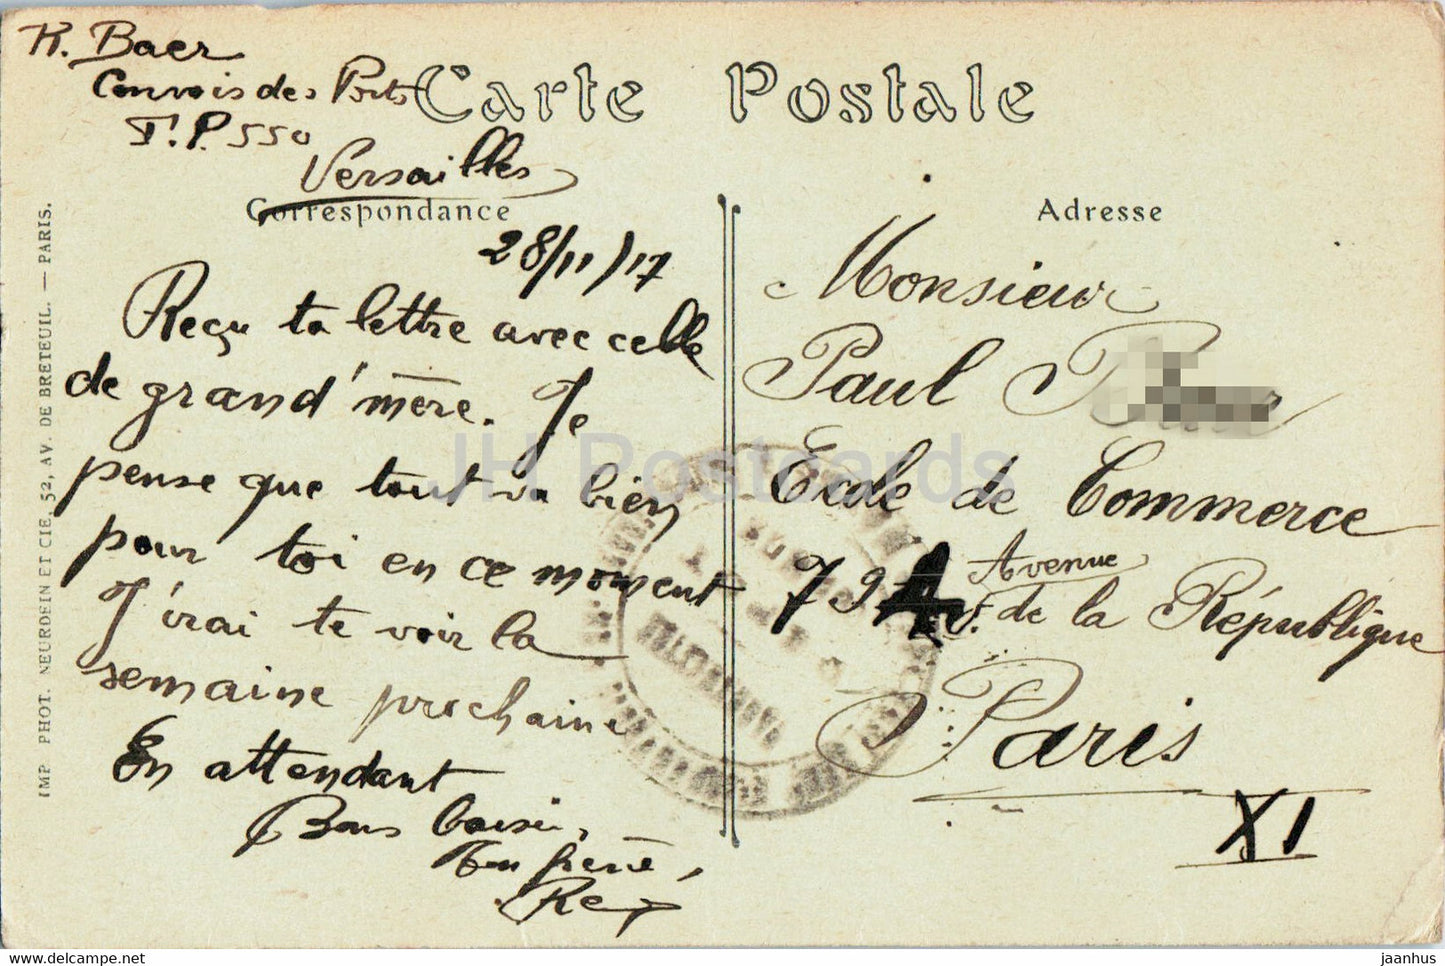 R. Baer
Convois des Ports
T.P. 550
Versailles
Carte Postale
Correspondance
28/11/17
Reçu ta lettre avec celle
de grand'mère. Je
pense que tout va bien
pour toi en ce moment
J'irai te voir la
semaine prochaine
En attendant
Bons baisers,
Ton frère,
IMP. PHOT. NEURDEIN ET CIE, 52, AV. DE BRETEUIL. — PARIS.
Adresse
Monsieur
Paul
Ecole de Commerce
79 Avenue de la République
Paris
XI
JH Postcards
www.delcampe.net
jaanhus